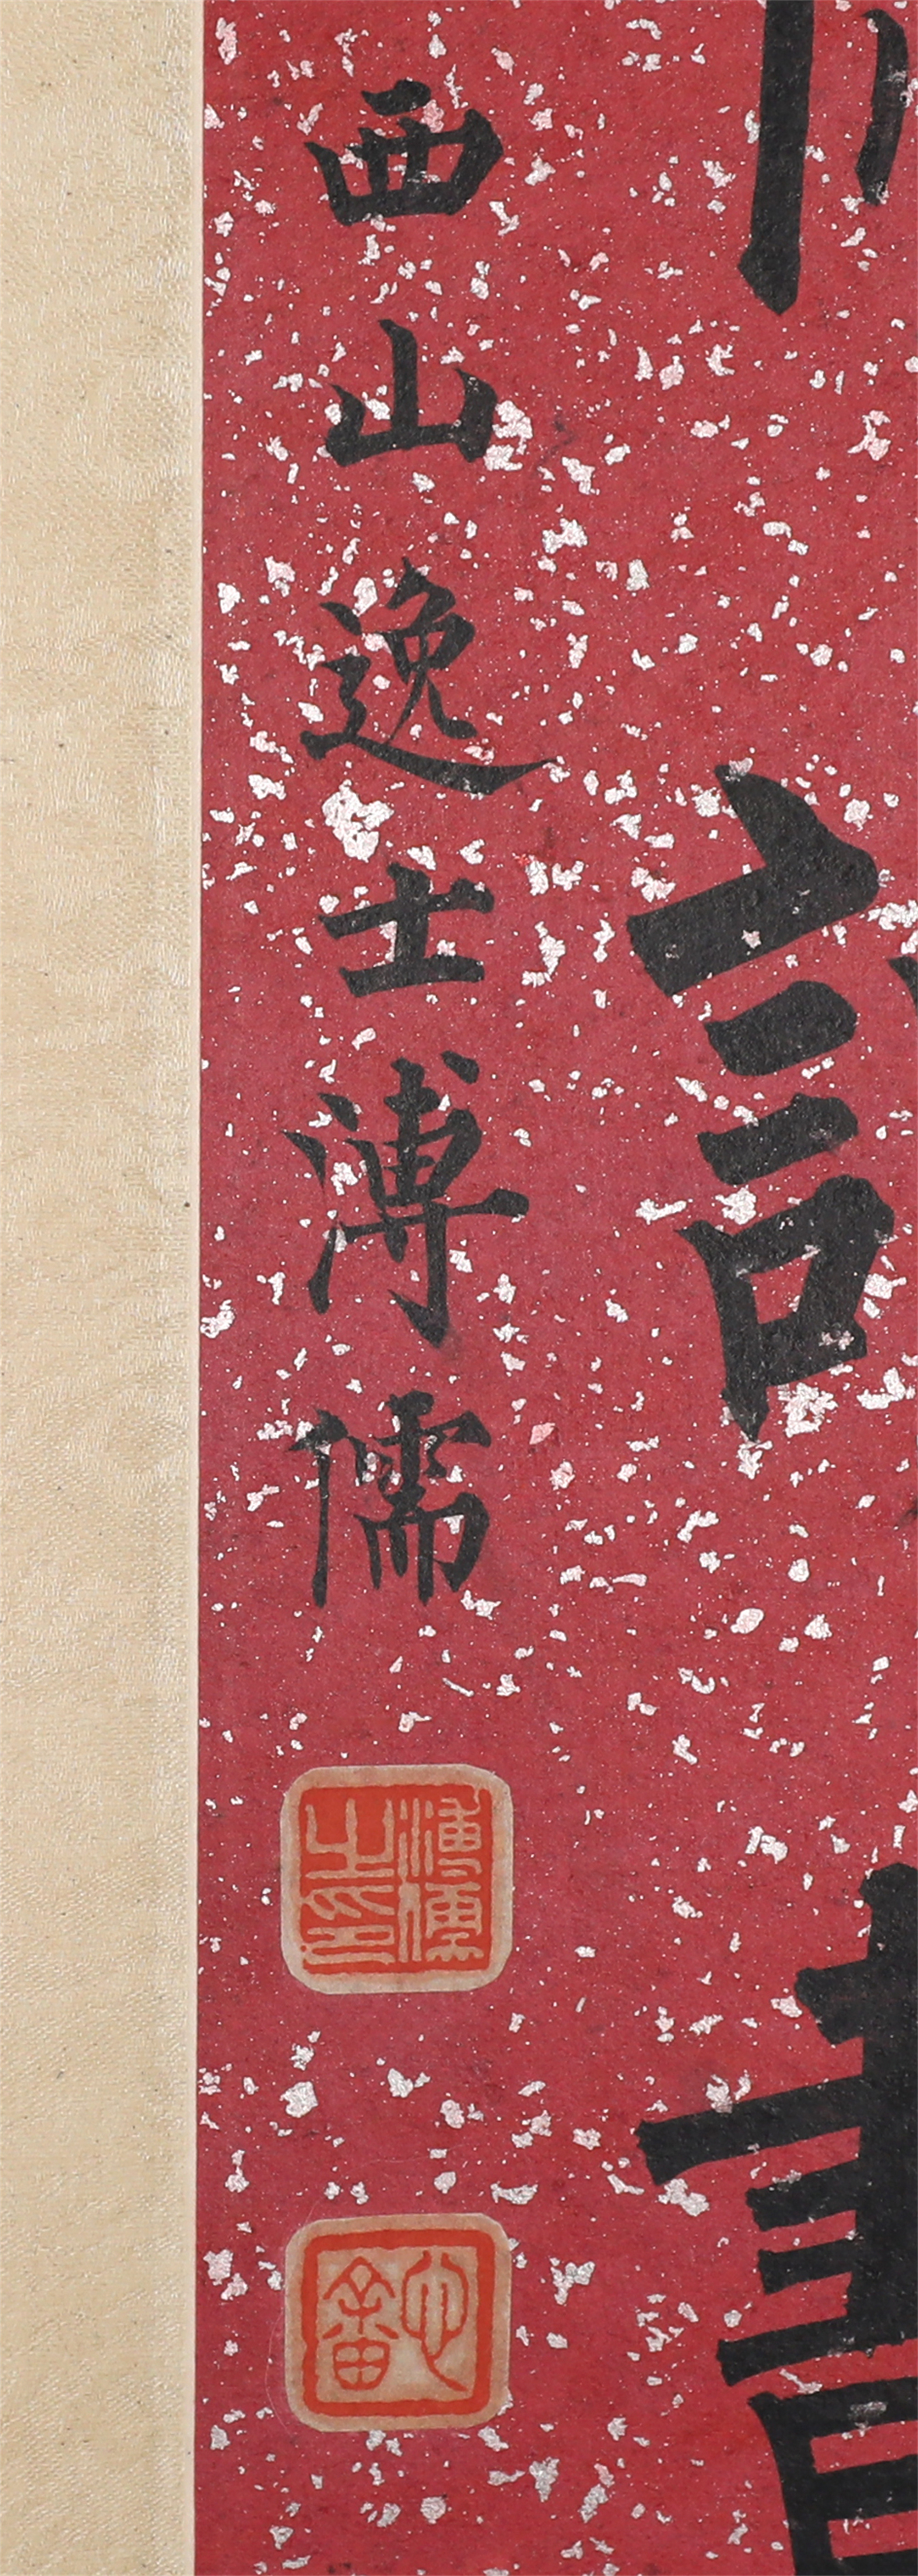 書
西山逸士溥儒
溥儒之印
心畬